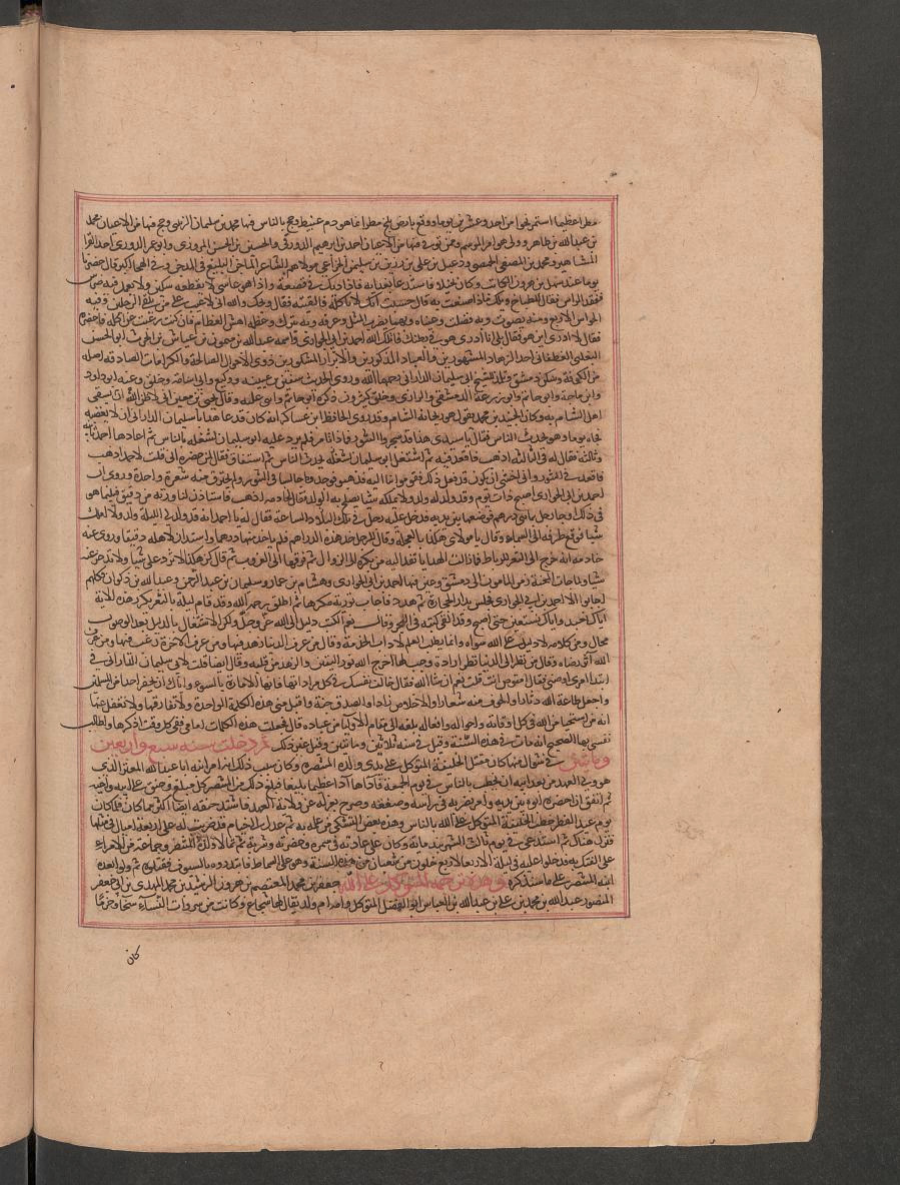 مطرا عظيما استمر نحوا من احد وعشرين يوما ووقع بارض بلخ مطرا ماهو دم عبيط وحج بالناس فيها محمد بن سليمان الزينبي وحج فيها من الاعيان محمد
بن عبد الله بن طاهر وولى هو امر الموسم وممن توفي فيها من الاعيان احمد بن ابراهيم الدورقي والحسين بن الحسن المروزي وابو عمر الدوري احد القرا
المشاهير ومحمد بن المصفى الحمصي ودعبل بن علي بن رزين بن سليمان الخزاعي مولاهم الشاعر الماجن البليغ في المدح وفي الهجا اكثر قال حضرنا
يوما عند سهل بن هرون الكاتب وكان بخيلا فاستدعا بغدايه فاذا ديك في قصعة واذا هو قاسي لا يقطعه سكين ولا يعمل فيه ضرس
ففقد الراس فقال للطباخ ويلك ماذا صنعت به قال حسبت انك لا تاكله فالقيته فقال ويحك والله اني لاعيب على من يلقى الرجلين وفيه
الحواس الاربع ومنه يصوت وبه فضلت وعيناه وبهما يضرب المثل وعرفه وبه يتبرك وعظمه اهش العظام فان كنت رغبت عن اكله فاحضره
فقال لا ادري اين هو فقال بلى انا ادري هو في بطنك قاتلك الله احمد بن ابي الحواري واسمه عبد الله بن ميمون بن عياش بن الحرث ابو الحسن
التغلبي الغطفاني احد الزهاد المشهورين والعباد المذكورين والابرار المشكورين ذوي الاحوال الصالحة والكرامات الصادقه اصله
من الكوفة وسكن دمشق وتلمذ للشيخ ابي سليمان الداراني رحمهما الله وروى الحديث سفين بن عيينه ووكيع وابي اسامة وخلق وعنه ابو داود
وابن ماجة وابو حاتم وابو زرعة الدمشقي والرازي وخلق كثيرون ذكره ابو حاتم واثنى عليه وقال يحيى بن معين اني لاظن الله ان يسقي
اهل الشام به وكان الجنيد بن محمد يقول هو ريحانة الشام وقد روى الحافظ ابن عساكر انه كان قد عاهد ابا سليمان الداراني ان لا يغضبه
فجاه يوما وهو يحدث الناس فقال يا سيدي هذا قد سجروا التنور فماذا تامر فلم يرد عليه ابو سليمان لشغله بالناس ثم اعادها احمد ثانية
وثالثة فقال له في الثالثه اذهب فاقعد فيه ثم اشتغل ابو سليمان لشغله بحديث الناس ثم استفاق فقال لمن حضره اني قلت لاحمد اذهب
فاقعد في التنور واني اخشى ان يكون قد فعل ذلك فقوموا بنا اليه فذهبوا فوجدوه جالسا في التنور ولم يحترق منه شعرة واحدة وروي ان
احمد بن ابي الحواري اصبح ذات يوم وقد ولد له ولد ولا يملك شيا يصلح به الولد فقال لخادمه اذهب فاستدن لنا وزنة من دقيق فبينما هو
في ذلك وجا رجل بمايتي درهم فوضعها بين يديه فدخل عليه رجل في تلك الساعة فقال له يا احمد انه قد ولد لي الليلة ولد ولا املك
شيا فرفع طرفه الى السماء وقال يا مولاي هكذا بالعجلة وقال للرجل خذ هذه الدراهم فلم ياخذ منها درهما واستدان لاهله دقيقا وروى عنه
خادمه انه خرج الى الثغر للرباط فما زالت الهدايا تفد اليه من بكرة الى الزوال ثم فرقها الى الغروب ثم قال كن هكذا لا ترد على شيا ولا تدخر عنه
شيا ولما جات المحنة زمن المامون الى دمشق وعين فيها احمد بن ابي الحواري وهشام بن عمار وسليمان بن عبد الرحمن وعبد الله بن ذكوان فكلهم
اجابوا الا احمد بن ابي الحواري فحبس بدار الحجارة ثم هدد فاجاب تورية مكرها ثم اطلق رحمه الله وقد قام ليلة بالثغر يكرر هذه الاية
اياك نعبد واياك نستعين حتى اصبح وقد القى كتبه في البحر وقال نعم الدليل كنت دليلي الى الله عز وجل ولكن الاشتغال بالدليل بعد الوصول
محال ومن كلامه لا دليل على الله سواه وانما يطلب العلم لاداب الخدمة وقال من عرف الدنيا زهد فيها ومن عرف الاخرة رغب فيها ومن عرف
الله آثر رضاه وقال من نظر الى الدنيا نظر ارادة وحب لها اخرج الله نور اليقين والزهد من قلبه وقال ايضا قلت لابي سليمان الداراني في
ابتدا امري اوصني فقال امستوص انت قلت نعم ان شا الله فقال خالف نفسك في كل مراداتها فانها الامارة بالسوء واياك ان تحقر احدا من المسلمين
واجعل طاعة الله دثارا والخوف منه شعارا والاخلاص زادا والصدق جنة واقبل مني هذه الكلمة الواحدة ولا تفارقها ولا تغفل عنها
انه من استحيا من الله في كل اوقاته واحواله وافعاله بلغه الى مقام الاوليا من عباده قال فجعلت هذه الكلمات امامي ففي كل وقت اذكرها واطالب
نفسي بها الصحيح انه مات في هذه السنة وقيل في سنة ثلاثين ومايتين وقيل غير ذلك ثم دخلت سنه سبع واربعين
ومايتين في شوال منها كان مقتل الخليفة المتوكل على يدي ولده المنتصر وكان سبب ذلك انه امر ابنه ابا عبد الله المعتز الذي
هو ولي العهد من بعد ابيه ان يخطب بالناس في يوم الجمعة فاداها آدا عظيما بليغا فبلغ ذلك من المنتصر كل مبلغ وحنق على ابيه واخيه
ثم اتفق ان احضره ابوه بين يديه وامر بضربه في راسه وصفعه وصرح بعزله عن ولاية العهد فاشتد حنقه ايضا اكثر مما كان فلما كان
يوم عيد الفطر خطب الخليفة المتوكل على الله بالناس وعنده بعض التشكي من علة به ثم عدل الى خيام قد ضربت له على اربعة اميال في مثلها
فنزل هناك ثم استدعى في يوم ثالث الشهر بندمايه وكان على عادته في سمره وحضرته وشربه ثم تمالا ولده المنتصر وجماعة من الامراء
على الفتك به فدخلوا عليه في ليلة الاربعا لاربع خلون من شعبان من هذه السنة وهو على السماط فابتدروه بالسيوف فقتلوه ثم ولوا بعده
ابنه المنتصر على ما سنذكره وهذه ترجمة المتوكل على الله جعفر بن محمد المعتصم بن هرون الرشيد بن محمد المهدي بن ابي جعفر
المنصور عبد الله بن محمد بن علي بن عبد الله بن العباس ابو الفضل المتوكل وامه ام ولد يقال لها شجاع وكانت من سروات النساء سخا وحزما
كان